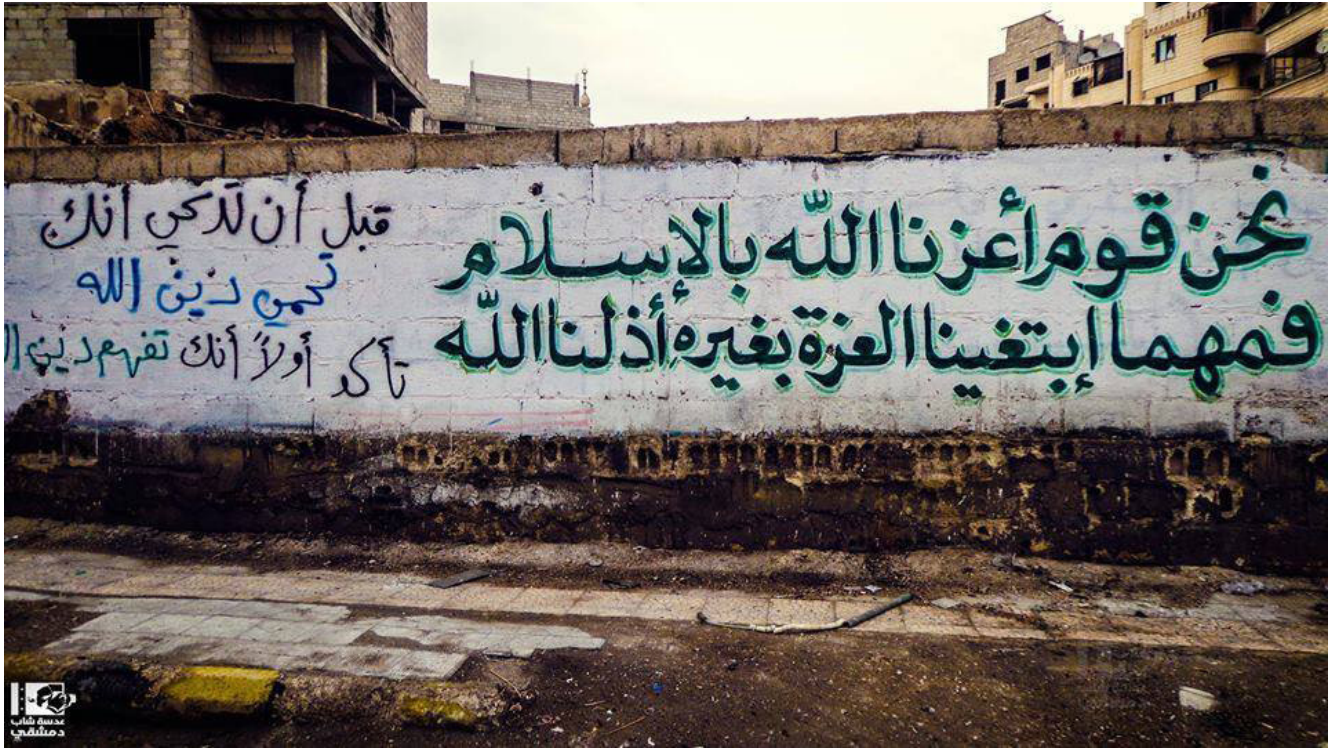 نحن قوم أعزنا الله بالإسلام
فمهما إبتغينا العزة بغيره أذلنا الله
قبل أن تدعي أنك
تحمي دين الله
تأكد أولاً أنك تفهم دين
عدسة شاب
دمشقي